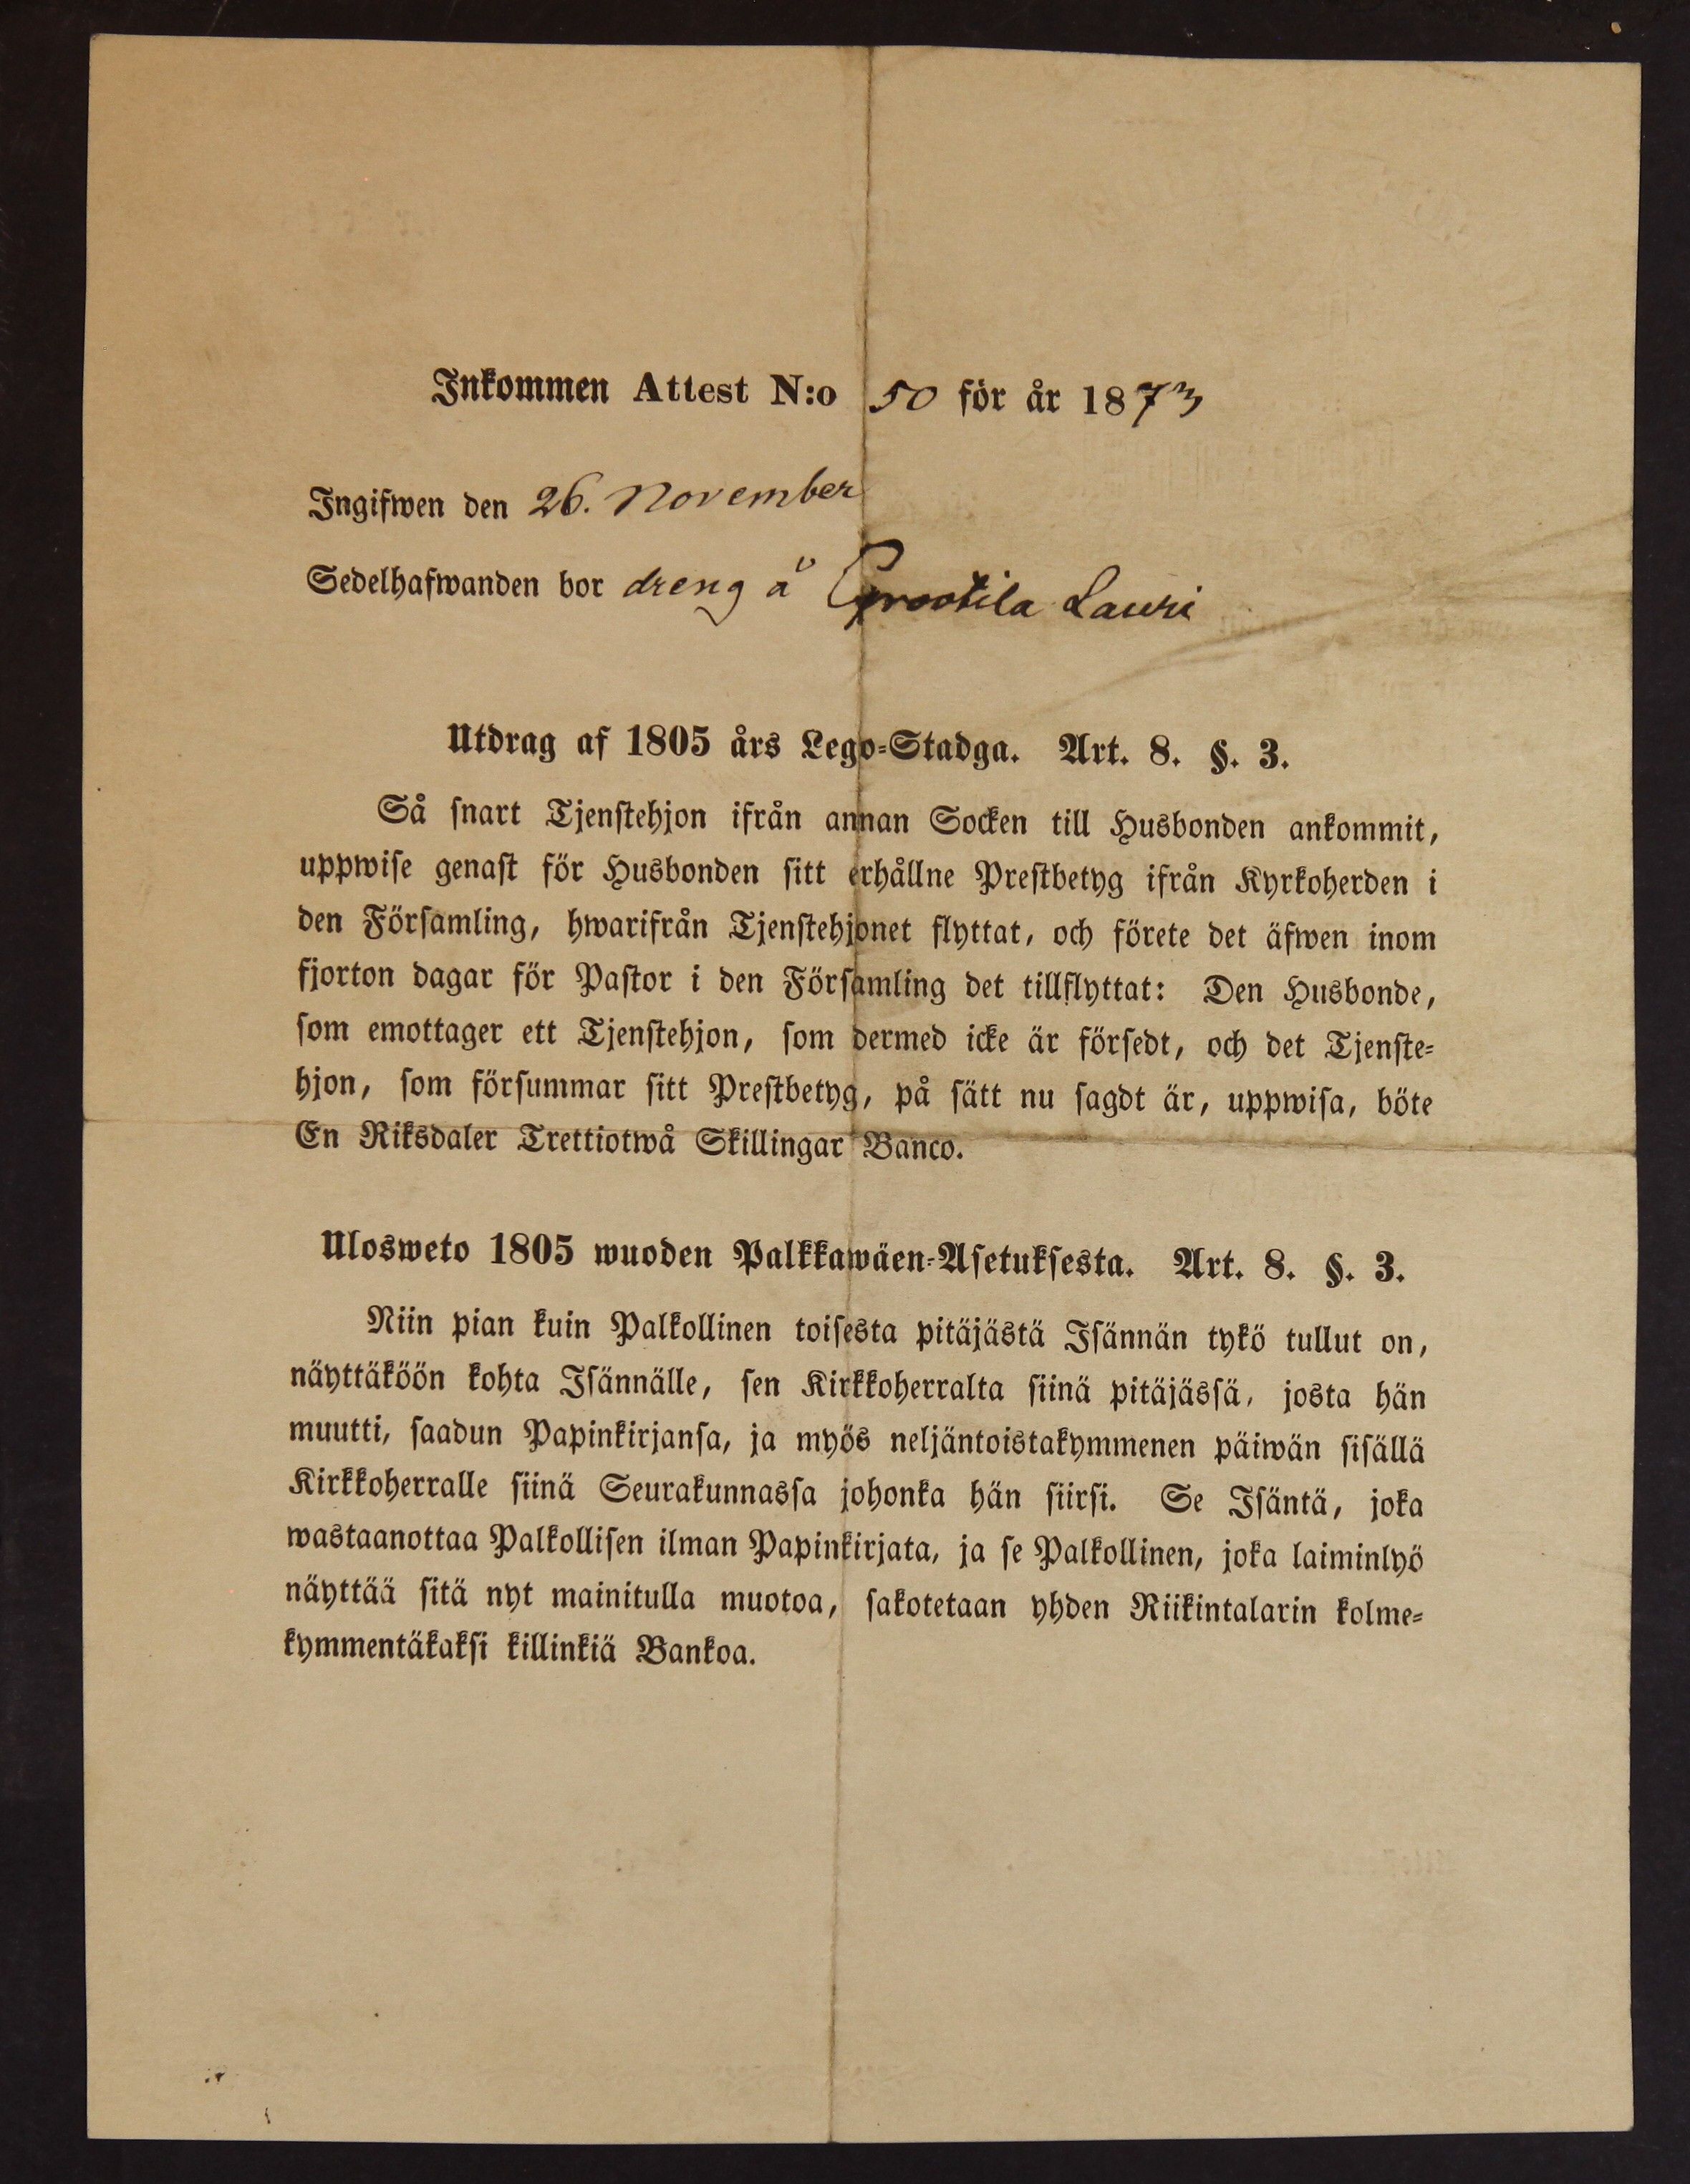 Inkommen Attest N:o 50 för år 1873
Ingifwen den 26. November
Sedelhafwanden bor dreng å Lauri
Utdrag af 1805 års Lego-Stadga. Art. 8. §. 3.
Så snart Tjenstehjon ifrån annan Socken till Husbonden ankommit,
uppwise genast för Husbonden sitt erhållne Prestbetyg ifrån Kyrkoherden i
den Församling, hwarifrån Tjenstehjonet flyttat, och förete det äfwen inom
fjorton dagar för Pastor i den Församling det tillflyttat: Den Husbonde,
som emottager ett Tjenstehjon, som dermed icke är försedt, och det Tjenste-
hjon, som försummar sitt Prestbetyg, på sätt nu sagdt är, uppwisa, böte
En Riksdaler Trettiotwå Skillingar Banco.
Ulosweto 1805 wuoden Palkkawäen-Asetuksesta. Art. 8. §. 3.
Niin pian kuin Palkollinen toisesta pitäjästä Isännän tykö tullut on,
näyttäköön kohta Isännälle, sen Kirkkoherralta siinä pitäjässä, josta hän
muutti, saadun Papinkirjansa, ja myös neljäntoistakymmenen päiwän sisällä
Kirkkoherralle siinä Seurakunnassa johonka hän siirsi. Se Isäntä, joka
wastaanottaa Palkollisen ilman Papinkirjata, ja se Palkollinen, joka laiminlyö
näyttää sitä nyt mainitulla muotoa, sakotetaan yhden Riikintalarin kolme-
kymmentäkaksi killinkiä Bankoa.